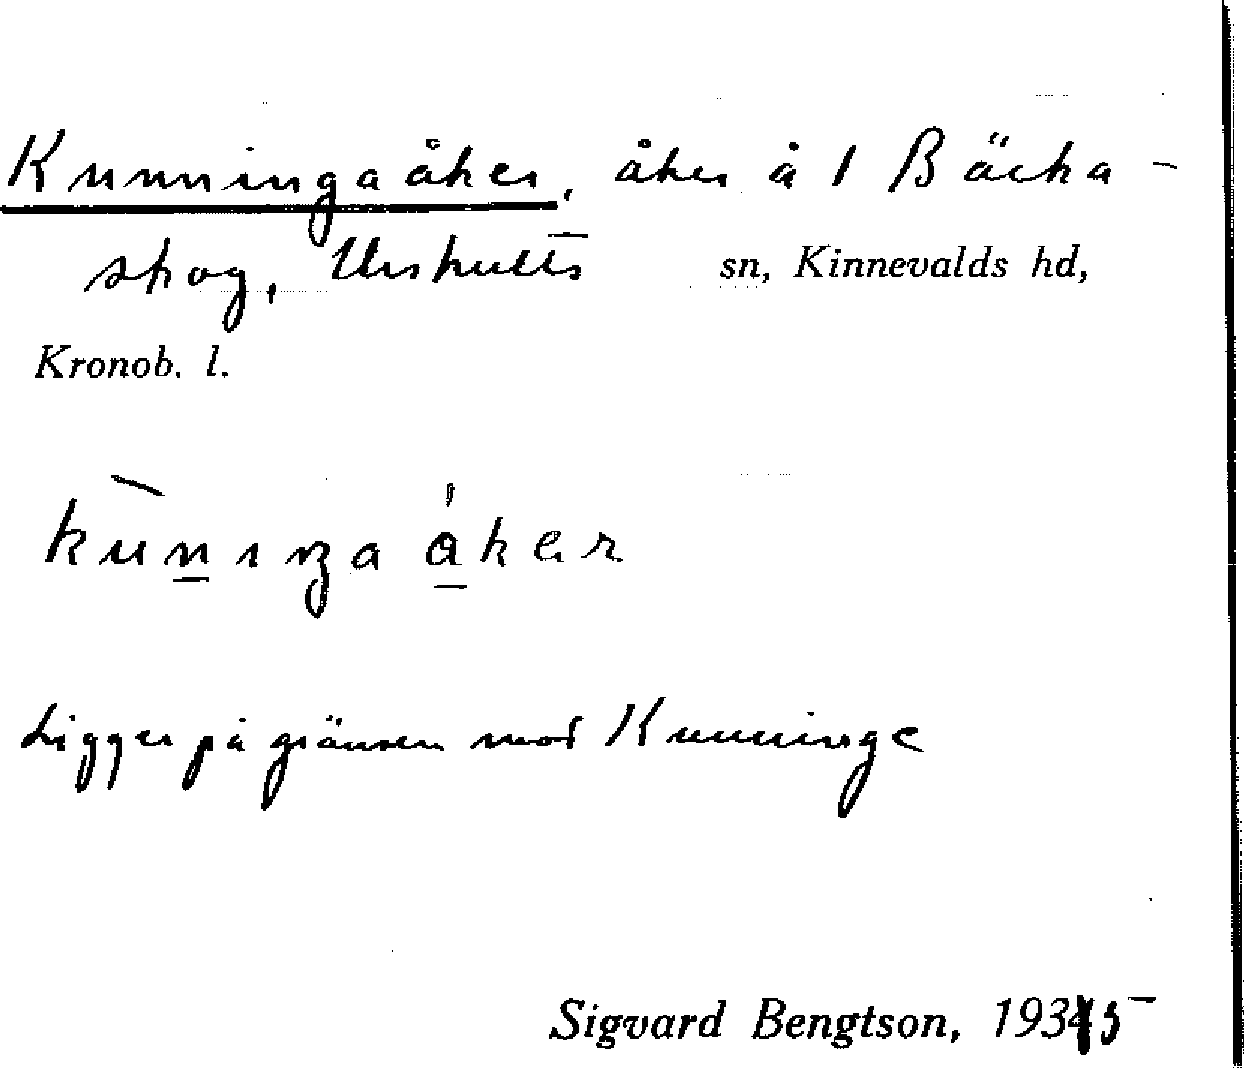 Kunningaåker, åker å 1 Bäcka-
skog, Urshults sn, Kinnevalds hd,
Kronob. l.
kùnıŋa åkər
Ligger på gränsen mot Kunninge
Sigvard Bengtson, 1935